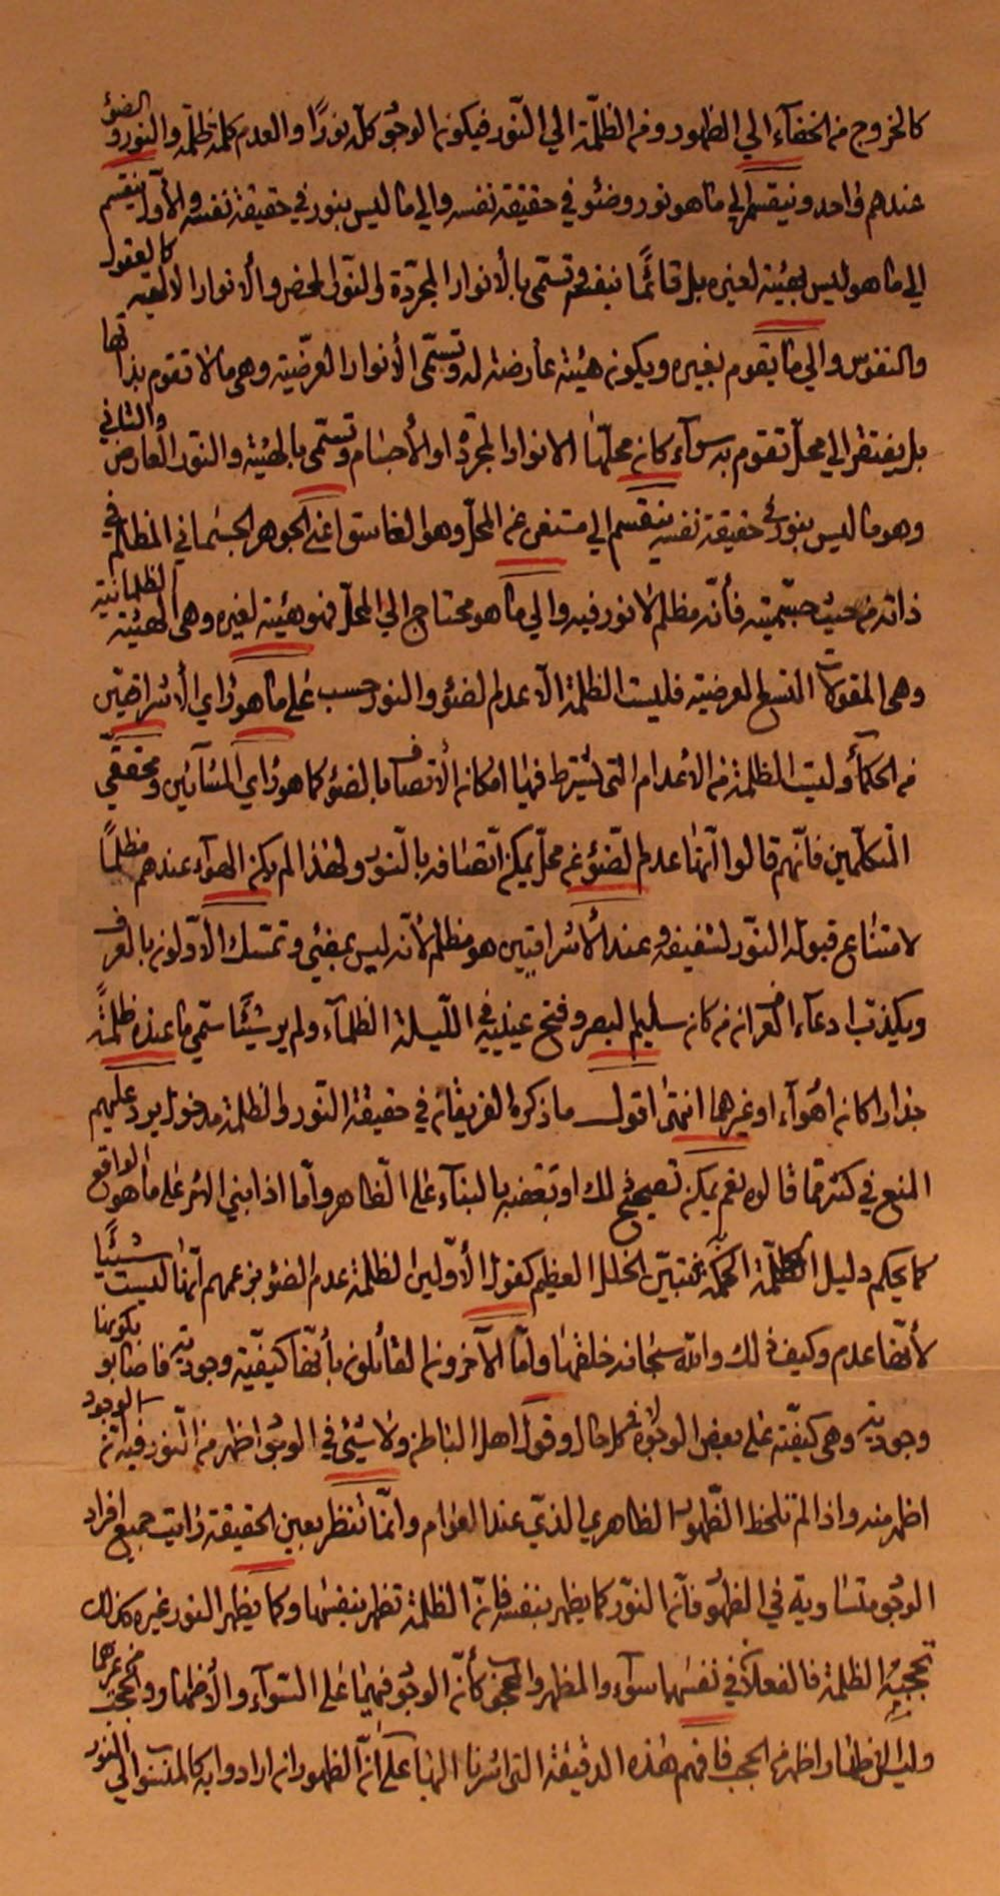 كالخروج من الخفآء الي الظهور ومن الظلمة الي النّور فيكون الوجود كلّه نورًا والعدم كله ظلمة والنور والضوء
عندهم واحد وينقسم الي ما هو نور وضوء في حقيقة نفسه والي ما ليس بنور في حقيقة نفسه والأول ينقسم
الي ما هو ليس بهيئة لغيره بل قائمًا بنفسه وتسمّى بالأنوار المجرّدة والنّور المحض والأنوار الالهية كالعقول
والنفوس والي ما يقوم بغيره ويكون هيئة عارضة له وتسمّى الأنوار العرضيّة وهي ما لا تقوم بذاتها
بل يفتقر الي محلّ تقوم به سوآء كان محلّها الانوار المجردة او الأجسام وتسمّى بالهيئة والنّور العارض والثاني
وهو ما ليس بنور في حقيقة نفسه ينقسم الي مستغني عن المحلّ وهو الغاسق اعني الجوهر الجسماني المظلم في
ذاته من حيث جسميّته فأنّه مظلم لا نور فيه والي ما هو محتاج الي المحلّ فهو هيئة لغيره وهي الهيئة الظلمانية
وهي المقولات التسع العرضية فليست الظلمة الا عدم الضوء والنور حسب علي ما هو رأي الأشراقيّين
من الحكمآء وليست الظلمة من الأعدام التي يشترط فيها امكان الأتصاف بالضوء كما هو رأي المشآئين ومحققي
المتكلّمين فانّهم قالوا انّها عدم الضّوء عن محلّ يمكن اتّصافه بالنّور ولهذا لم يكن الهوآء عندهم مظلمًا
لامتناع قبوله النوّر لشفيفه وعند الأشراقيين هو مظلم لأنّه ليس بمضئ وتمسّك الاّولون بالعرف
ويكذّب ادعآء العرف انّ من كان سليم البصر وفتح عينيه في اللّيلة الظلمآء ولم ير شيئًا سمّي ما عنده ظلمةً
جدارا كان او هوآء او غيرهما انتهى اقول ما ذكره الفريقان في حقيقة النّور والظلمة مدخول يرد عليهم
المنع في كثير ممّا قالوه نعم يمكن تصحيح ذلك او بعضه بالبنآء على الظاهر وامّا اذا بني الامر على ما هو الواقع
كما يحكم دليل الحكمة فيتبيّن الخلل العظيم كقول الأوّلين الظلمة عدم الضوء بزعمهم انّها ليست شيئًا
لأنّها عدم وكيف ذلك والله سبحانه خلقها وامّا الآخرون القائلون بأنّها كيفيّة وجوديّة فاصابو بكونها
وجوديّة وهي كيفيّة على بعض الوجوه لا في كل حال وقول اهل الباطن ولا شيئ في الوجود اظهر من النّور فيه انّ الوجود
اظهر منه واذا لم تلحظ الظّهور الظاهري الذي عند العوام وانّما تنظر بعين الحقيقة رأيت جميع افراد
الوجود متساوية في الظهور فأنّ النوّر كما يظهر بنفسه فانّ الظلمة تظهر بنفسها وكما يظهر النور غيره كذلك
تحجبه الظلمة فالفعلان في نفسهما سوآء والمظهر والمحجوب كأنّ الوجود فيهما على السّوآء والأظهار والحجب من غيرها
وليس الاظهار اظهر من الحجب فافهم هذه الدقيقة التي اشرنا اليها على انّ الظهور ان ارادوا به كالمنسوب الي النور